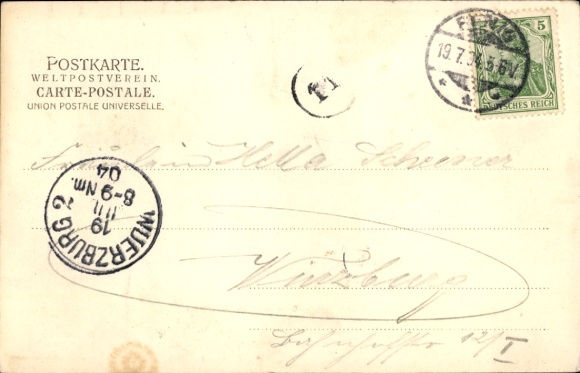 POSTKARTE.
WELTPOSTVEREIN.
CARTE-POSTALE.
UNION POSTALE UNIVERSELLE.
5 5
DEUTSCHES REICH
19.7.
Fräulein Hella
Würzburg
Bahnhofstr 12/I
WUERZBURG 2
19
JUL
8-9 Nm.
04